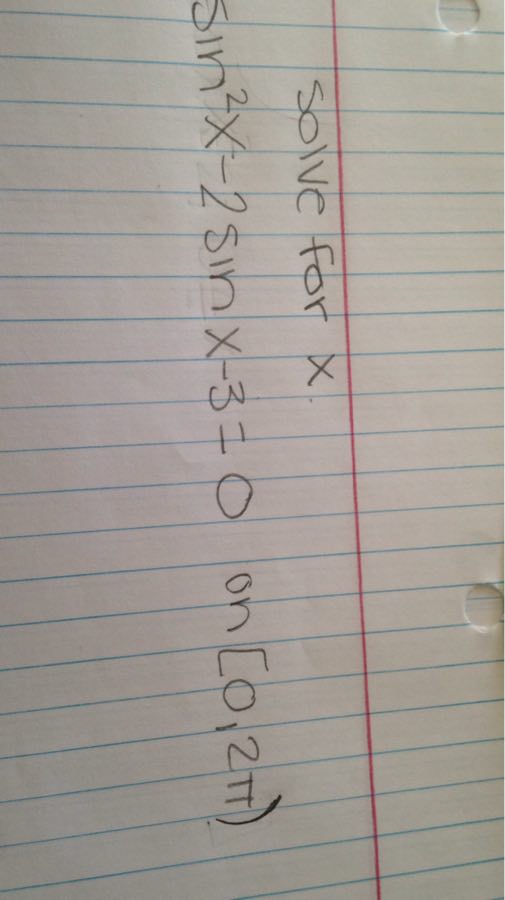 solve for x.
sin²x-2 sin x-3=0 on [0,2π)